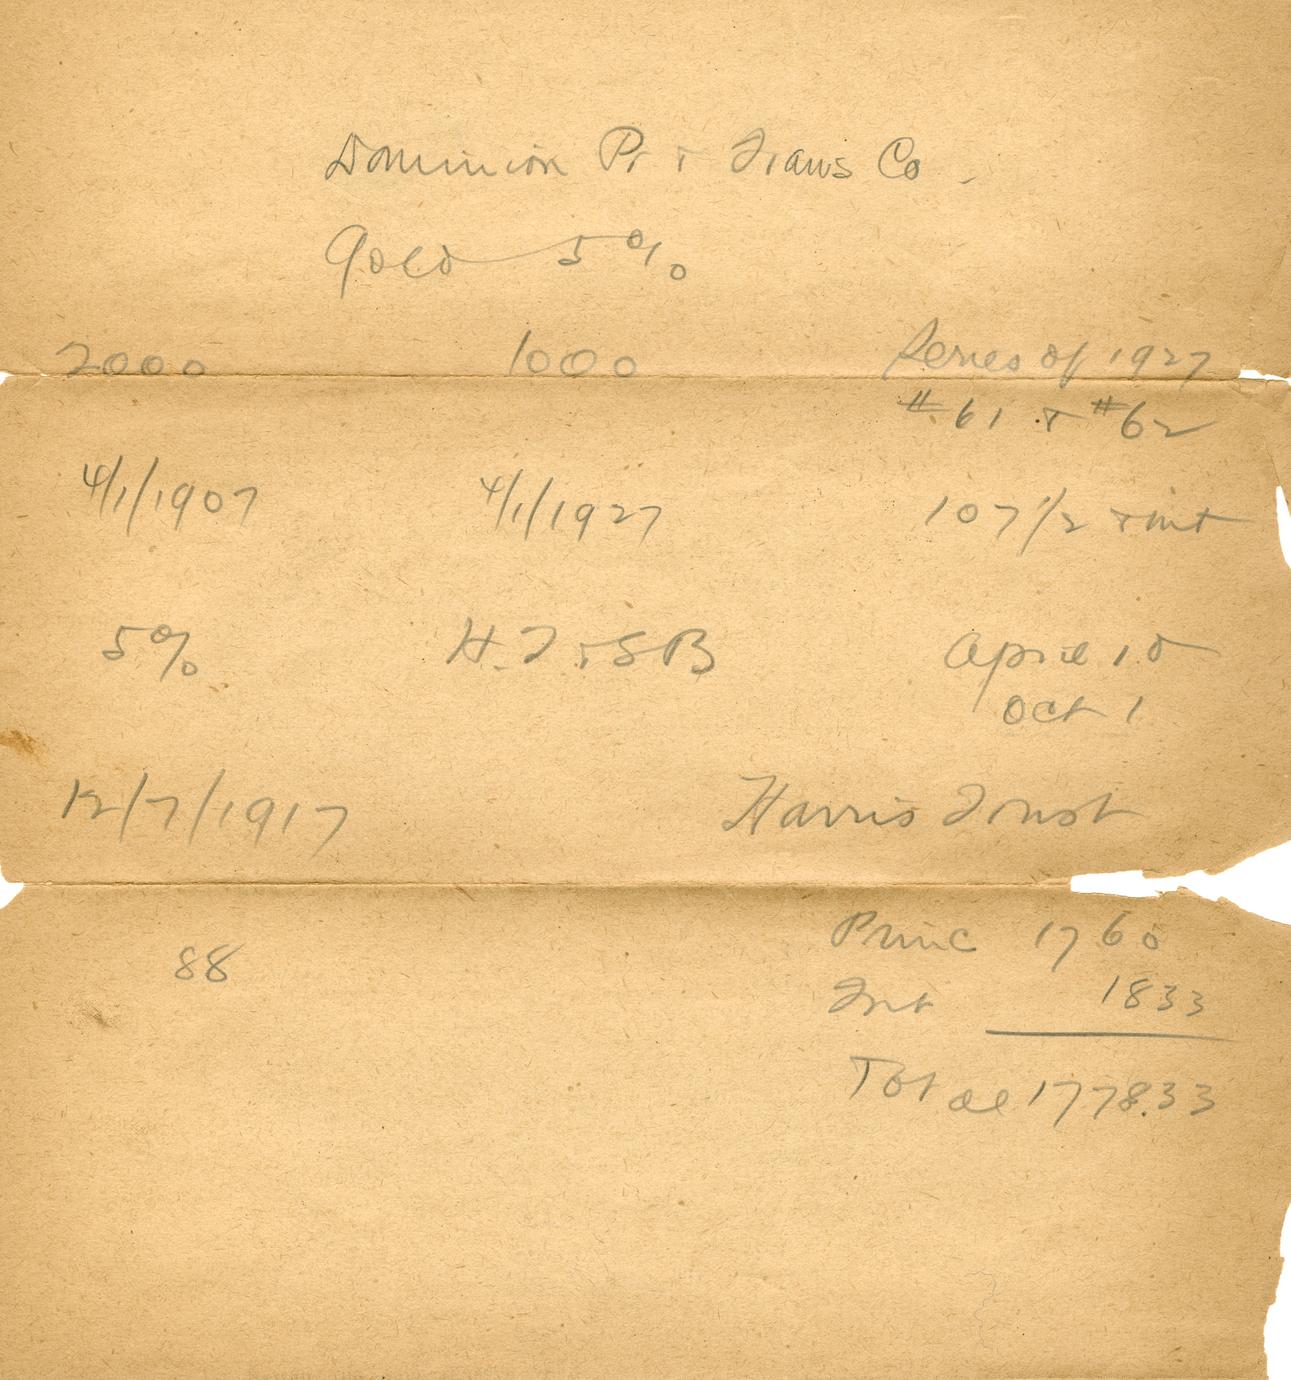 Dominion Pr & Trans Co.
Gold 5%
2000 1000 Series of 1927
#61 & #62
4/1/1907 4/1/1927 107 1/2 & int
5% H.T. & S B April 1st
Oct 1
12/7/1917 Harris Trust
88 Princ 1760
Int 1833
Total 1778.33